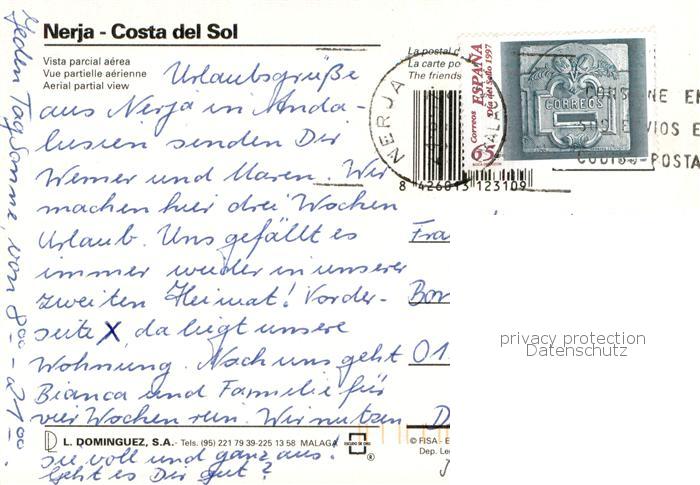 Nerja - Costa del Sol
Vista parcial aérea
Vue partielle aérienne
Aerial partial view
Urlaubsgrüße
aus Nerja in Anda-
lusien senden Dir
Werner und Maren. Wir
machen hier drei Wochen
Urlaub. Uns gefällt es
immer wieder in unserer
zweiten Heimat! Vorder-
seite X, da liegt unsere
Wohnung. Nach uns geht
Bianca und Familie für
vier Wochen rein. Wir nutzen
sie voll und ganz aus.
Geht es Dir gut?
Jeden Tag Sonne, von 8⁰⁰ - 21⁰⁰.
La postal d
La carte po
The friends
8 426013 123109
NERJA
Correos ESPAÑA
Día del Sello 1997
65
CORREOS
NE EN
VIOS E
POSTA
Fra
Bor
01
D
privacy protection
Datenschutz
L. DOMINGUEZ, S.A. - Tels. (95) 221 79 39-225 13 58 MALAGA
ESCUDO DE ORO
®
© FISA - E
Dep. Le